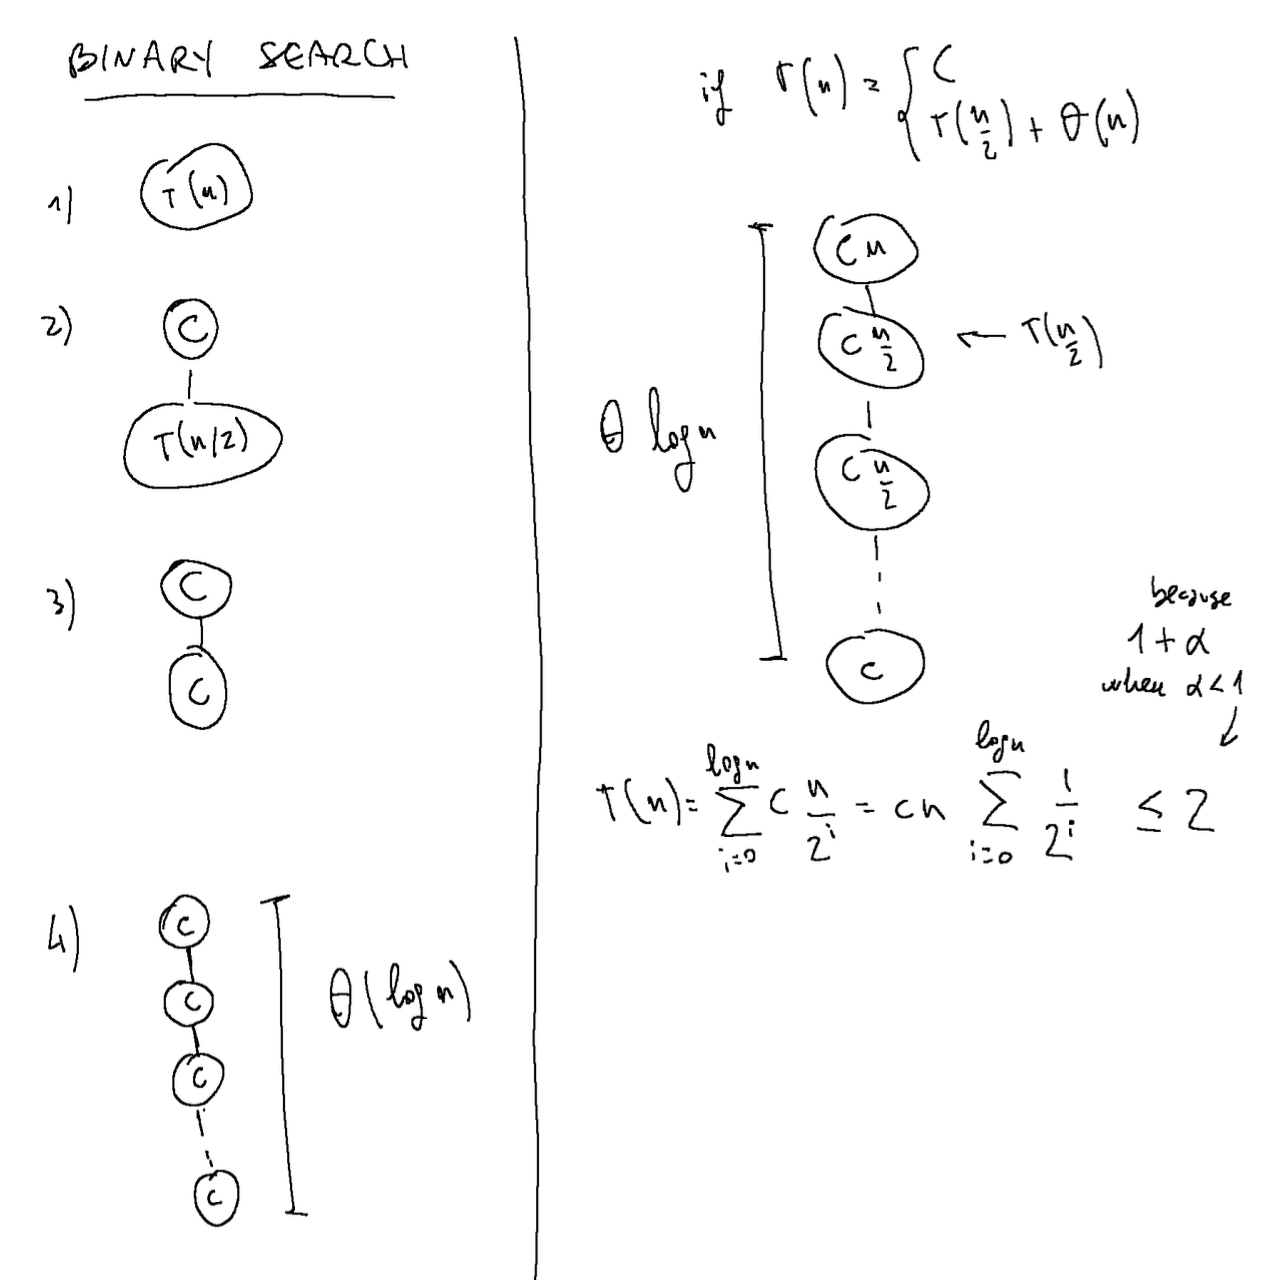 BINARY SEARCH
1) T(n)
2) C
T(n/2)
3) C
C
4) C
C
C
C
θ(log n)
if T(n) = { C
T(n/2) + θ(n)
Cn
C n/2 ← T(n/2)
θ log n
C n/2
C
because
1 + α
when α < 1
↓
T(n) = ∑_{i=0}^{log n} C n/2^i = cn ∑_{i=0}^{log n} 1/2^i ≤ 2